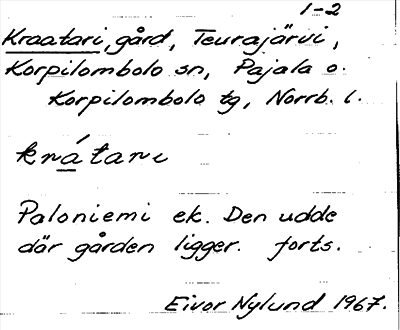 1-2
Kraatari, gård, Teurajärvi,
Korpilombolo sn, Pajala o.
Korpilombolo tg, Norrb. l.
krátari
Paloniemi ek. Den udde
där gården ligger. forts.
Eivor Nylund 1967.